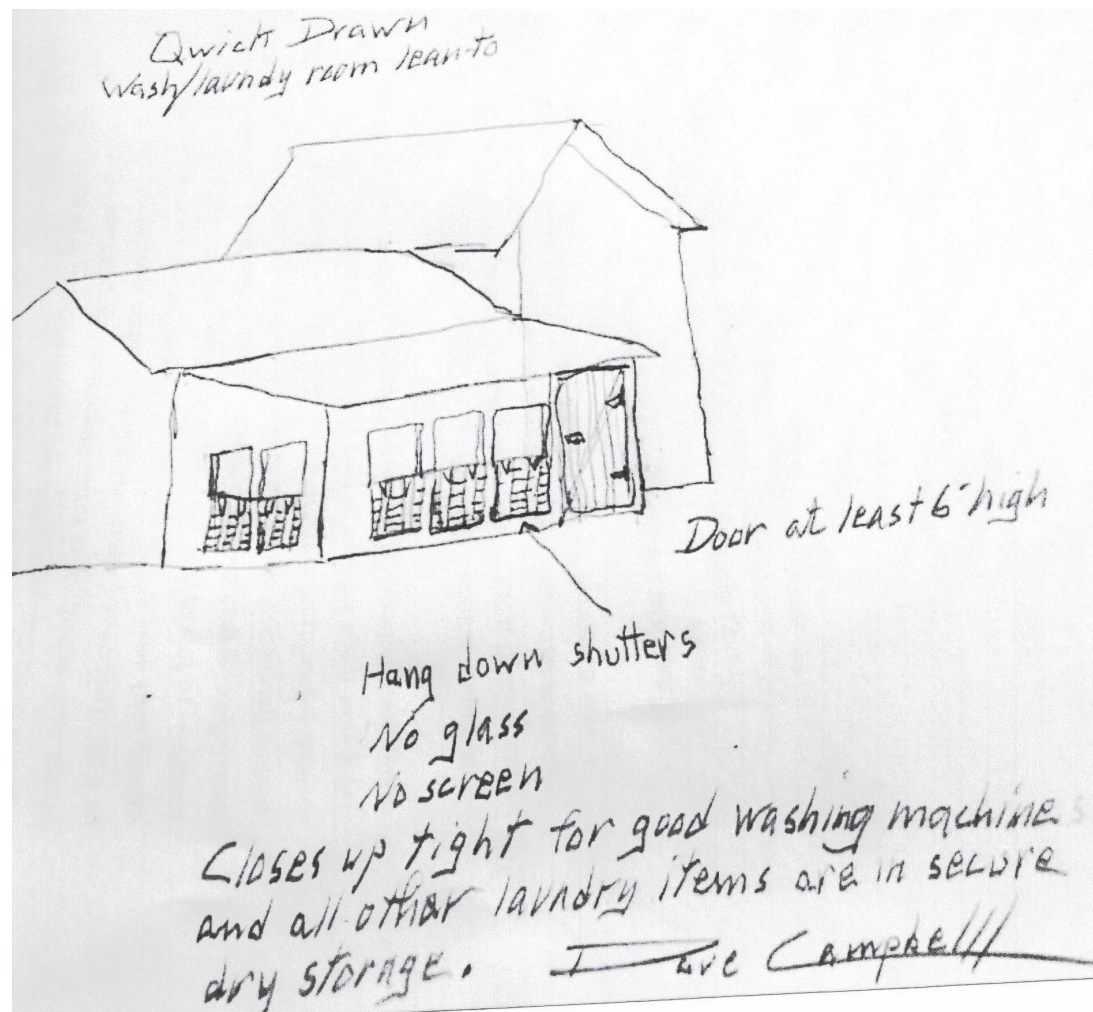 Qwick Drawn
Wash/laundy room lean-to
Door at least 6' high
Hang down shutters
No glass
No screen
Closes up tight for good washing machines
and all other laundry items are in secure
dry storage. Dave Campbell